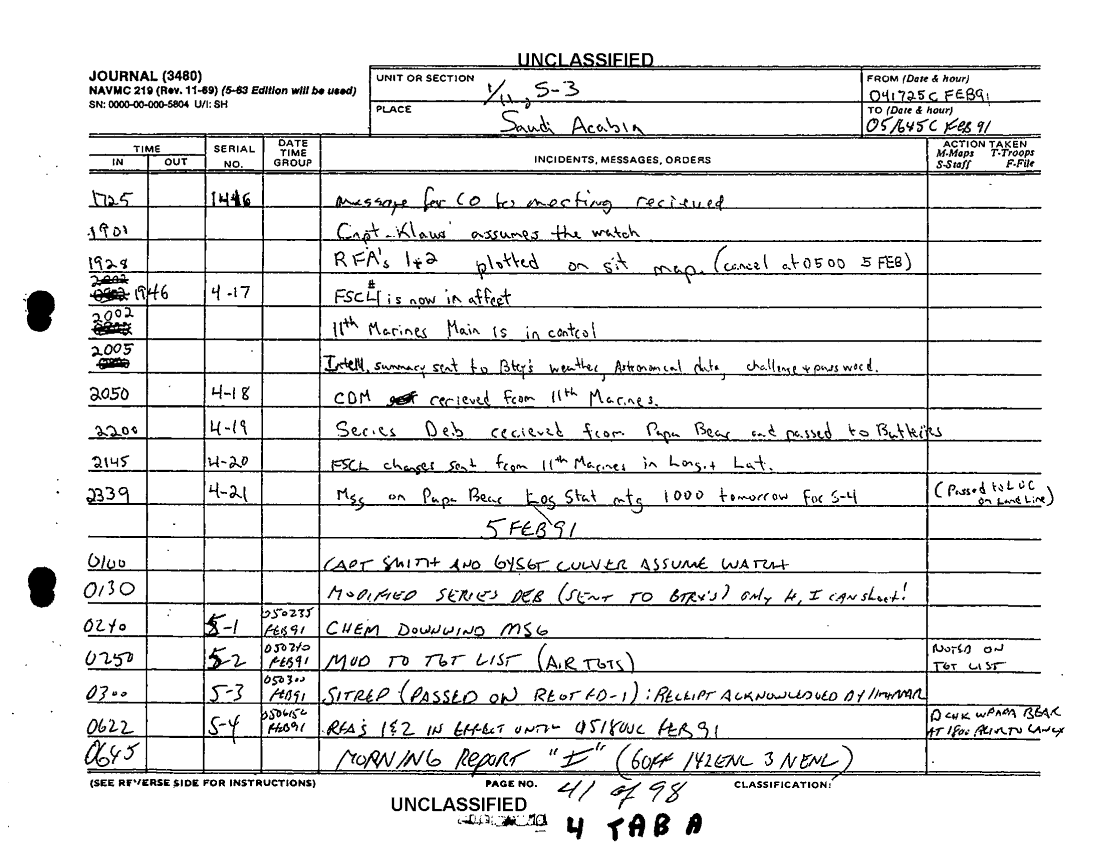 UNCLASSIFIED
JOURNAL (3480)
NAVMC 219 (Rev. 11-69) (5-63 Edition will be used)
SN: 0000-00-000-5804 U/I: SH
UNIT OR SECTION
1/11, S-3
PLACE
Saudi Arabia
FROM (Date & hour)
041725C FEB91
TO (Date & hour)
051645C FEB 91
TIME
IN OUT
SERIAL NO.
DATE TIME GROUP
INCIDENTS, MESSAGES, ORDERS
ACTION TAKEN
M-Maps T-Troops
S-Staff F-File
1725 1446 message for CO to meeting recieved
1901 Capt. Klaus assumes the watch
1928 RFA's 1&2 plotted on sit map. (cancel at 0500 5 FEB)
1946 4-17 FSCL # is now in affect
2002 11th Marines Main is in control
2005 Intell. summary sent to Btry's weather, Astronomical data, challenge & password.
2050 4-18 CDM recieved from 11th Marines.
2200 4-19 Series Deb recieved from Papa Bear and passed to Batteries
2145 4-20 FSCL changes sent from 11th Marines in Long. & Lat.
2339 4-21 Msg on Papa Bear Log Stat mtg 1000 tomorrow for S-4 (Passed to LOC on Land Line)
5 FEB 91
0100 CAPT SMITH AND GYSGT CULVER ASSUME WATCH
0130 MODIFIED SERIES DEB (SENT TO BTRY'S) only H, I CAN shoot!
0240 5-1 050235 FEB91 CHEM DOWNWIND MSG
0250 5-2 050240 FEB91 MOD TO TGT LIST (AIR TGTS) NOTED ON TGT LIST
0300 5-3 050300 FEB91 SITREP (PASSED ON REGT FD-1): RECEIPT ACKNOWLEDGED BY 11THMAR
0622 5-4 FEB91 RFA'S 1&2 IN EFFECT UNTIL 051800C FEB 91 CHK W PAPA BEAR AT 1800 PRIOR TO
0645 MORNING REPORT "I" (6 OFF 142 ENL 3 NENL)
(SEE REVERSE SIDE FOR INSTRUCTIONS)
PAGE NO. 41 of 98
CLASSIFICATION:
UNCLASSIFIED
4 TAB A